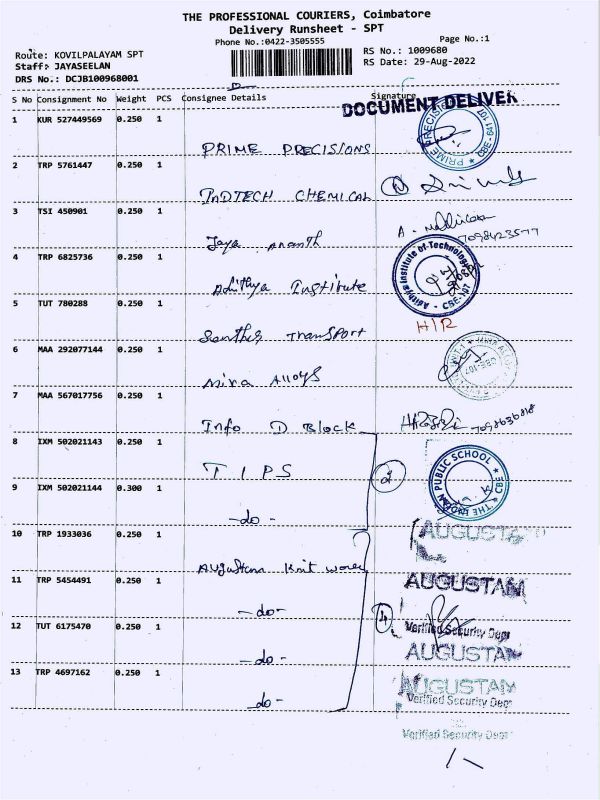 THE PROFESSIONAL COURIERS, Coimbatore
Delivery Runsheet - SPT
Phone No.:0422-3505555
Page No.:1
Route: KOVILPALAYAM SPT
RS No.: 1009680
Staff: JAYASEELAN
RS Date: 29-Aug-2022
DRS No.: DCJB100968001
S No Consignment No Weight PCS Consignee Details Signature
DOCUMENT DELIVER
1 KUR 527449569 0.250 1
PRIME PRECISIONS
PRIME PRECIS CBE-641 107
2 TRP 5761447 0.250 1
INDTECH CHEMICAL
3 TSI 450901 0.250 1
Jaya Ananth
A.
7098423577
4 TRP 6825736 0.250 1
Adithya Institute
Adithya Institute of Technology CBE-107
5 TUT 780288 0.250 1
H/R
Transport
6 MAA 292077144 0.250 1
Mira Alloys
CBE-107
7 MAA 567017756 0.250 1
Info D Block
7098636818
8 IXM 502021143 0.250 1
T I P S
2
THE INDIAN PUBLIC SCHOOL CBE
9 IXM 502021144 0.300 1
-do-
10 TRP 1933036 0.250 1
AUGUSTAN
Augustan Knit
11 TRP 5454491 0.250 1
AUGUSTAN
-do-
4
12 TUT 6175470 0.250 1
Verified Security Dept
-do-
AUGUSTAN
13 TRP 4697162 0.250 1
AUGUSTAN
-do-
Verified Security Dept
Verified Security Dept